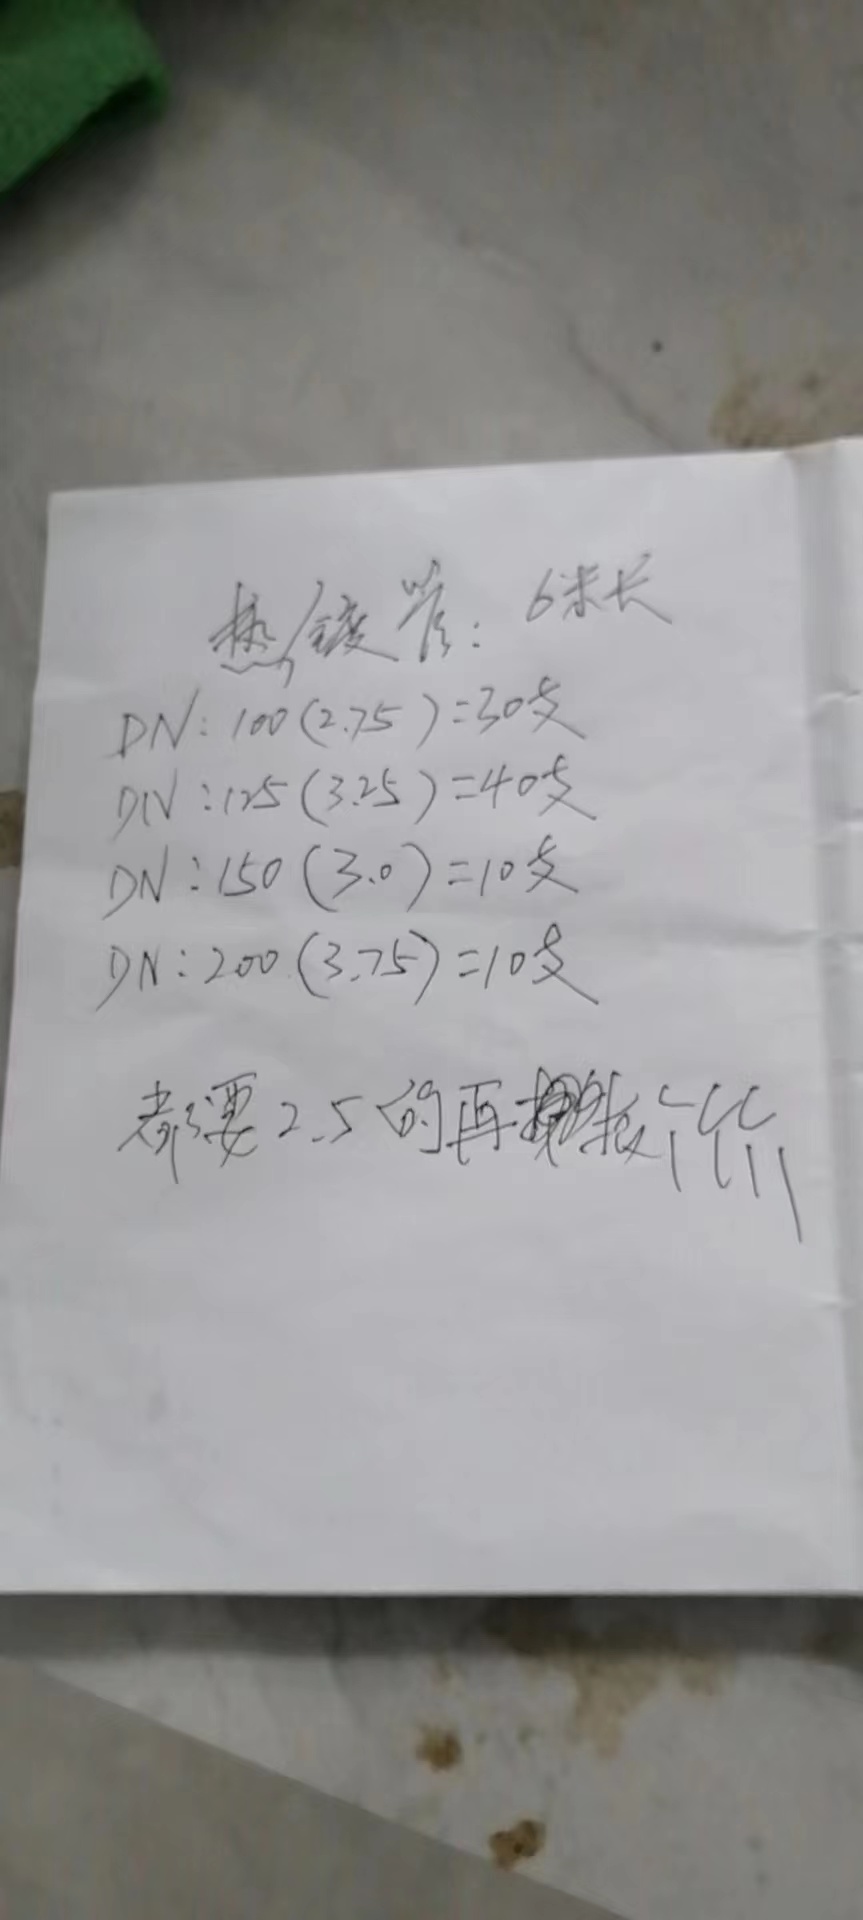 热镀管: 6米长
DN:100(2.75)=30支
DN:125(3.25)=40支
DN:150(3.0)=10支
DN:200(3.75)=10支
都要2.5的再报价